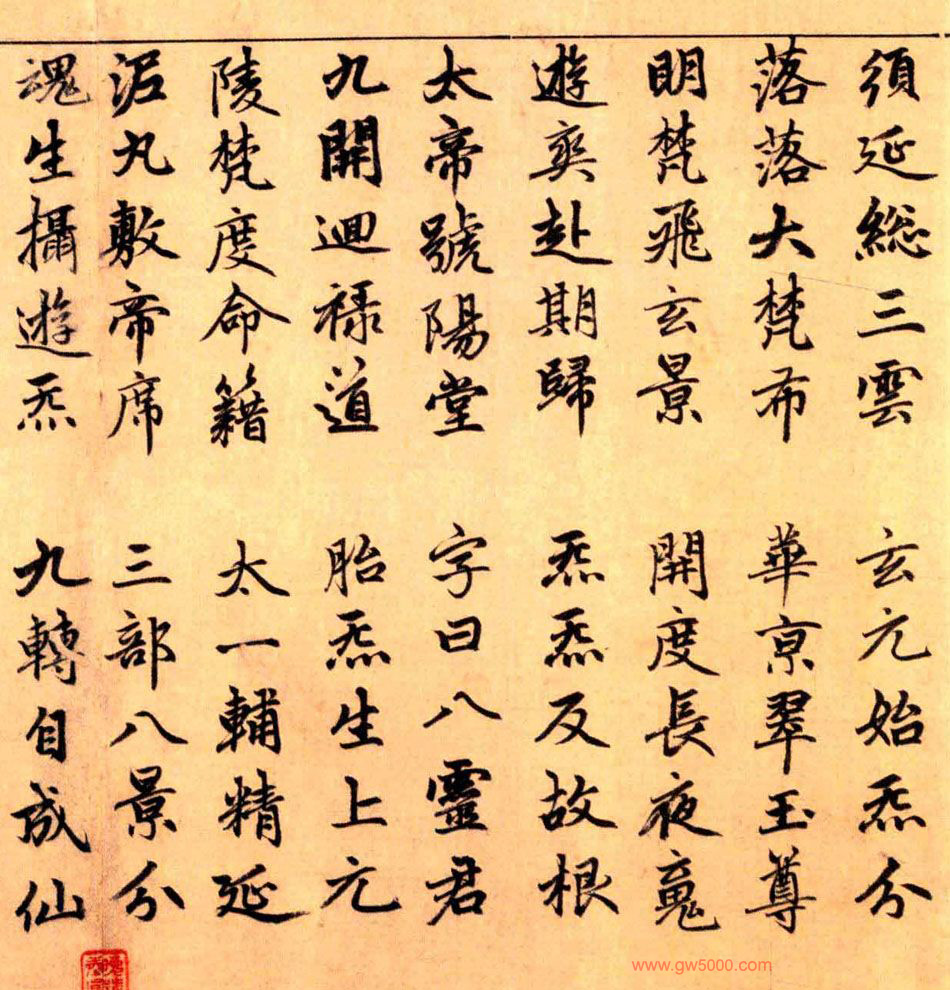 須延総三雲 玄元始炁分
落落大梵布 華京翠玉尊
明梵飛玄景 開度長夜䰟
遊爽赴期歸 炁炁反故根
太帝號陽堂 字曰八靈君
九開迴祿道 胎炁生上元
陵梵度命籍 太一輔精延
泥丸敷帝席 三部八景分
魂生攝遊炁 九轉自成仙
www.gw5000.com